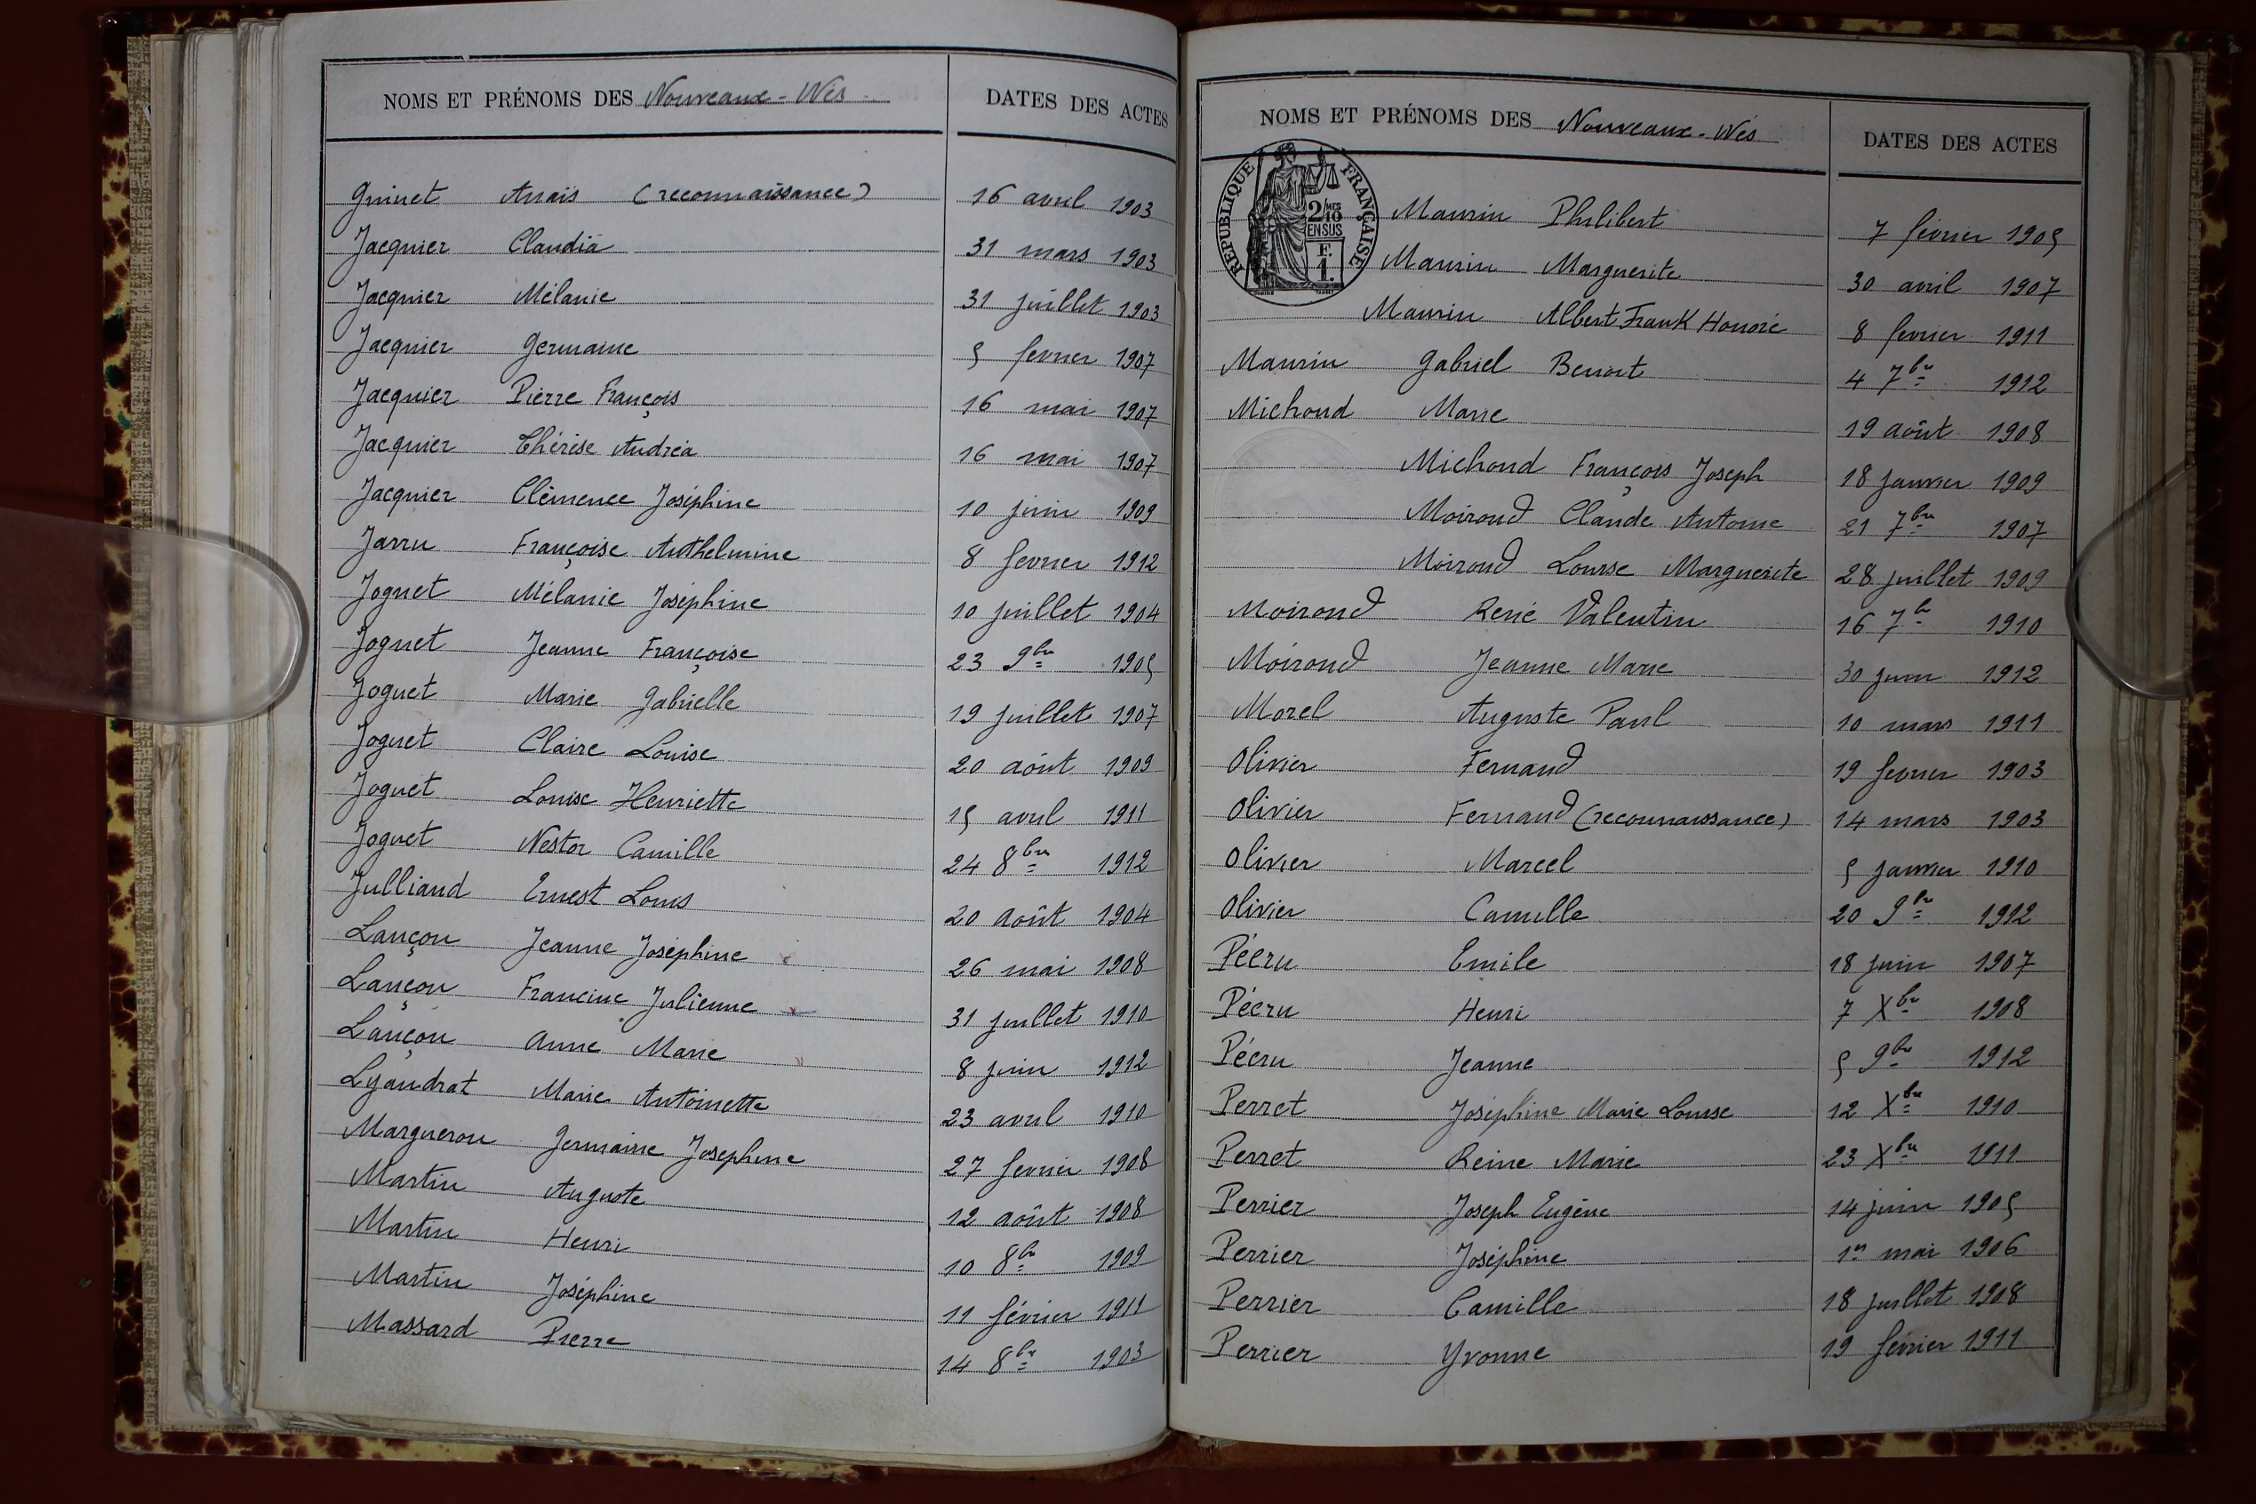 NOMS ET PRÉNOMS DES Nouveaux-Nés DATES DES ACTES
Guinet Anaïs (reconnaissance) 16 avril 1903
Jacquier Claudia 31 mars 1903
Jacquier Mélanie 31 juillet 1903
Jacquier Germaine 5 fevrier 1907
Jacquier Pierre François 16 mai 1907
Jacquier Thérèse Andréa 16 mai 1907
Jacquier Clémence Joséphine 10 juin 1909
Jarru Françoise Anthelmine 8 fevrier 1912
Joguet Mélanie Joséphine 10 juillet 1904
Joguet Jeanne Françoise 23 9bre 1905
Joguet Marie Gabrielle 19 juillet 1907
Joguet Claire Louise 20 août 1909
Joguet Louise Henriette 15 avril 1911
Joguet Nestor Camille 24 8bre 1912
Julliand Ernest Louis 20 août 1904
Lançon Jeanne Joséphine 26 mai 1908
Lançon Francine Julienne 31 juillet 1910
Lançon Anne Marie 8 juin 1912
Lyaudrat Marie Antoinette 23 avril 1910
Marguerou Germaine Josephine 27 fevrier 1908
Martin Auguste 12 août 1908
Martin Henri 10 8bre 1909
Martin Joséphine 11 février 1911
Massard Pierre 14 8bre 1903
NOMS ET PRÉNOMS DES Nouveaux-Nés DATES DES ACTES
RÉPUBLIQUE FRANÇAISE
2/10 MES
EN SUS
F.
1.
Maurin Philibert 7 février 1905
Maurin Marguerite 30 avril 1907
Maurin Albert Frank Honoré 8 fevrier 1911
Maurin Gabriel Benoit 4 7bre 1912
Michoud Marie 19 août 1908
Michoud François Joseph 18 janvier 1909
Moiroud Claude Antoine 21 7bre 1907
Moiroud Louise Marguerite 28 juillet 1909
Moiroud René Valentin 16 7bre 1910
Moiroud Jeanne Marie 30 juin 1912
Morel Auguste Paul 10 mars 1911
Olivier Fernand 19 fevrier 1903
Olivier Fernand (reconnaissance) 14 mars 1903
Olivier Marcel 5 janvier 1910
Olivier Camille 20 9bre 1912
Pécru Emile 18 juin 1907
Pécru Henri 7 Xbre 1908
Pécru Jeanne 5 9bre 1912
Perret Joséphine Marie Louise 12 Xbre 1910
Perret Reine Marie 23 Xbre 1911
Perrier Joseph Eugène 14 juin 1905
Perrier Joséphine 1er mai 1906
Perrier Camille 18 juillet 1908
Perrier Yvonne 19 février 1911